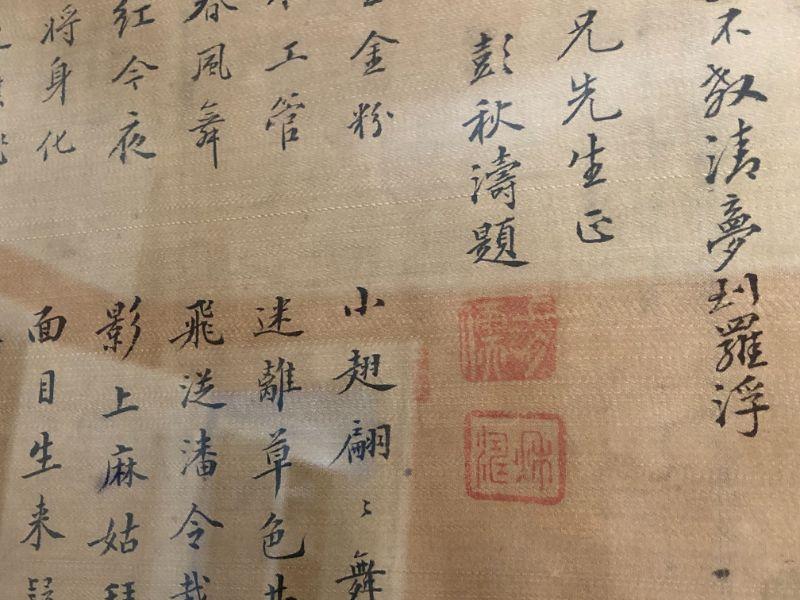 不教清夢到羅浮
兄先生正
彭秋濤題
金粉
工管
春風舞
紅今夜
將身化
小翅翩〻舞
迷離草色
飛從潘令栽
影上麻姑
面目生来